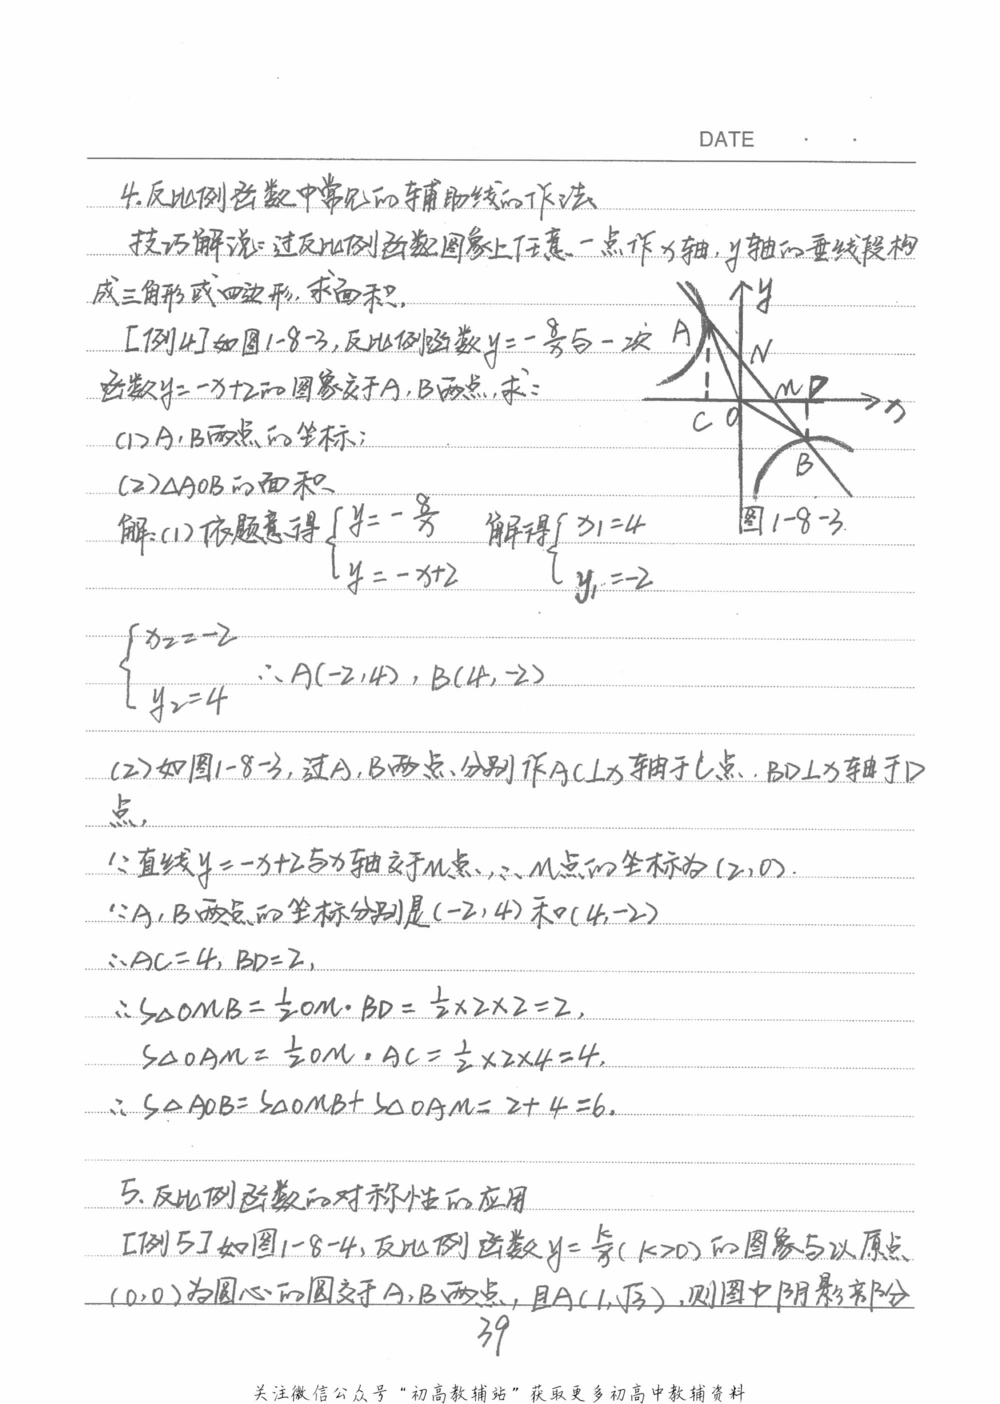 DATE · ·
4.反比例函数中常见的辅助线的作法
技巧解说:过反比例函数图象上任意一点作x轴,y轴的垂线段构
成三角形或四边形,求面积.
[例4]如图1-8-3,反比例函数y=-8/x与一次
函数y=-x+2的图象交于A,B两点,求:
(1)A,B两点的坐标;
(2)△AOB的面积.
y
A
N
M
D
C
O
x
B
图1-8-3
解:(1)依题意得{y=-8/x 解得{x₁=4
y=-x+2 y₁=-2
{x₂=-2
y₂=4 ∴A(-2,4),B(4,-2)
(2)如图1-8-3,过A,B两点,分别作AC⊥x轴于C点,BD⊥x轴于D
点,
∵直线y=-x+2与x轴交于M点,∴M点的坐标为(2,0).
∵A,B两点的坐标分别是(-2,4)和(4,-2)
∴AC=4,BD=2,
∴S△OMB=1/2OM·BD=1/2×2×2=2,
S△OAM=1/2OM·AC=1/2×2×4=4.
∴S△AOB=S△OMB+S△OAM=2+4=6.
5.反比例函数的对称性的应用
[例5]如图1-8-4,反比例函数y=k/x(k>0)的图象与以原点
(0,0)为圆心的圆交于A,B两点,且A(1,√3),则图中阴影部分
39
关注微信公众号“初高教辅站”获取更多初高中教辅资料